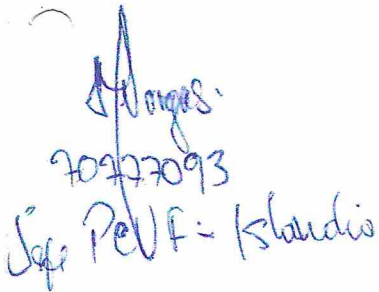 Vargas.
70777093
Jefe PCVF - Islandia